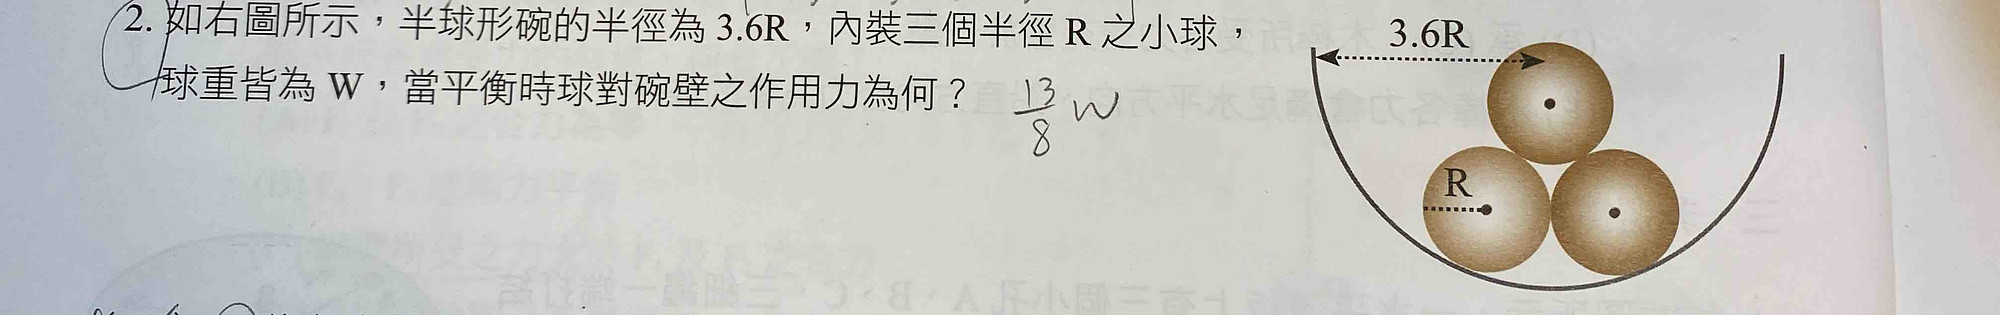 2. 如右圖所示，半球形碗的半徑為 3.6R，內裝三個半徑 R 之小球，
球重皆為 W，當平衡時球對碗壁之作用力為何？ 13/8 W
3.6R
R